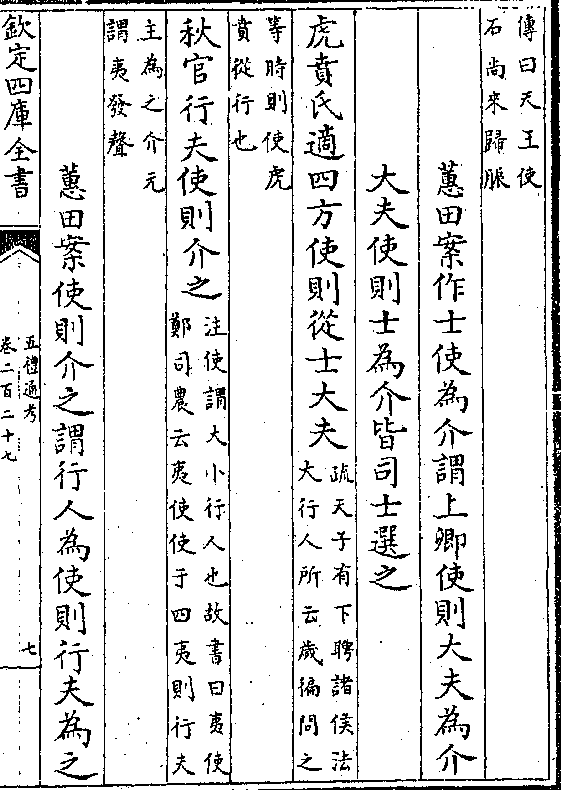 傳曰天王使
石尚來歸脤
蕙田案作士使為介謂上卿使則大夫為介
大夫使則士為介皆司士選之
虎賁氏適四方使則從士大夫
疏天子有下聘諸侯法
大行人所云歲徧問之
等時則使虎
賁從行也
秋官行夫使則介之
注使謂大小行人也故書曰夷使
鄭司農云夷使使于四夷則行夫
主為之介元
謂夷發聲
蕙田案使則介之謂行人為使則行夫為之
欽定四庫全書
五禮通考
卷二百二十七
七